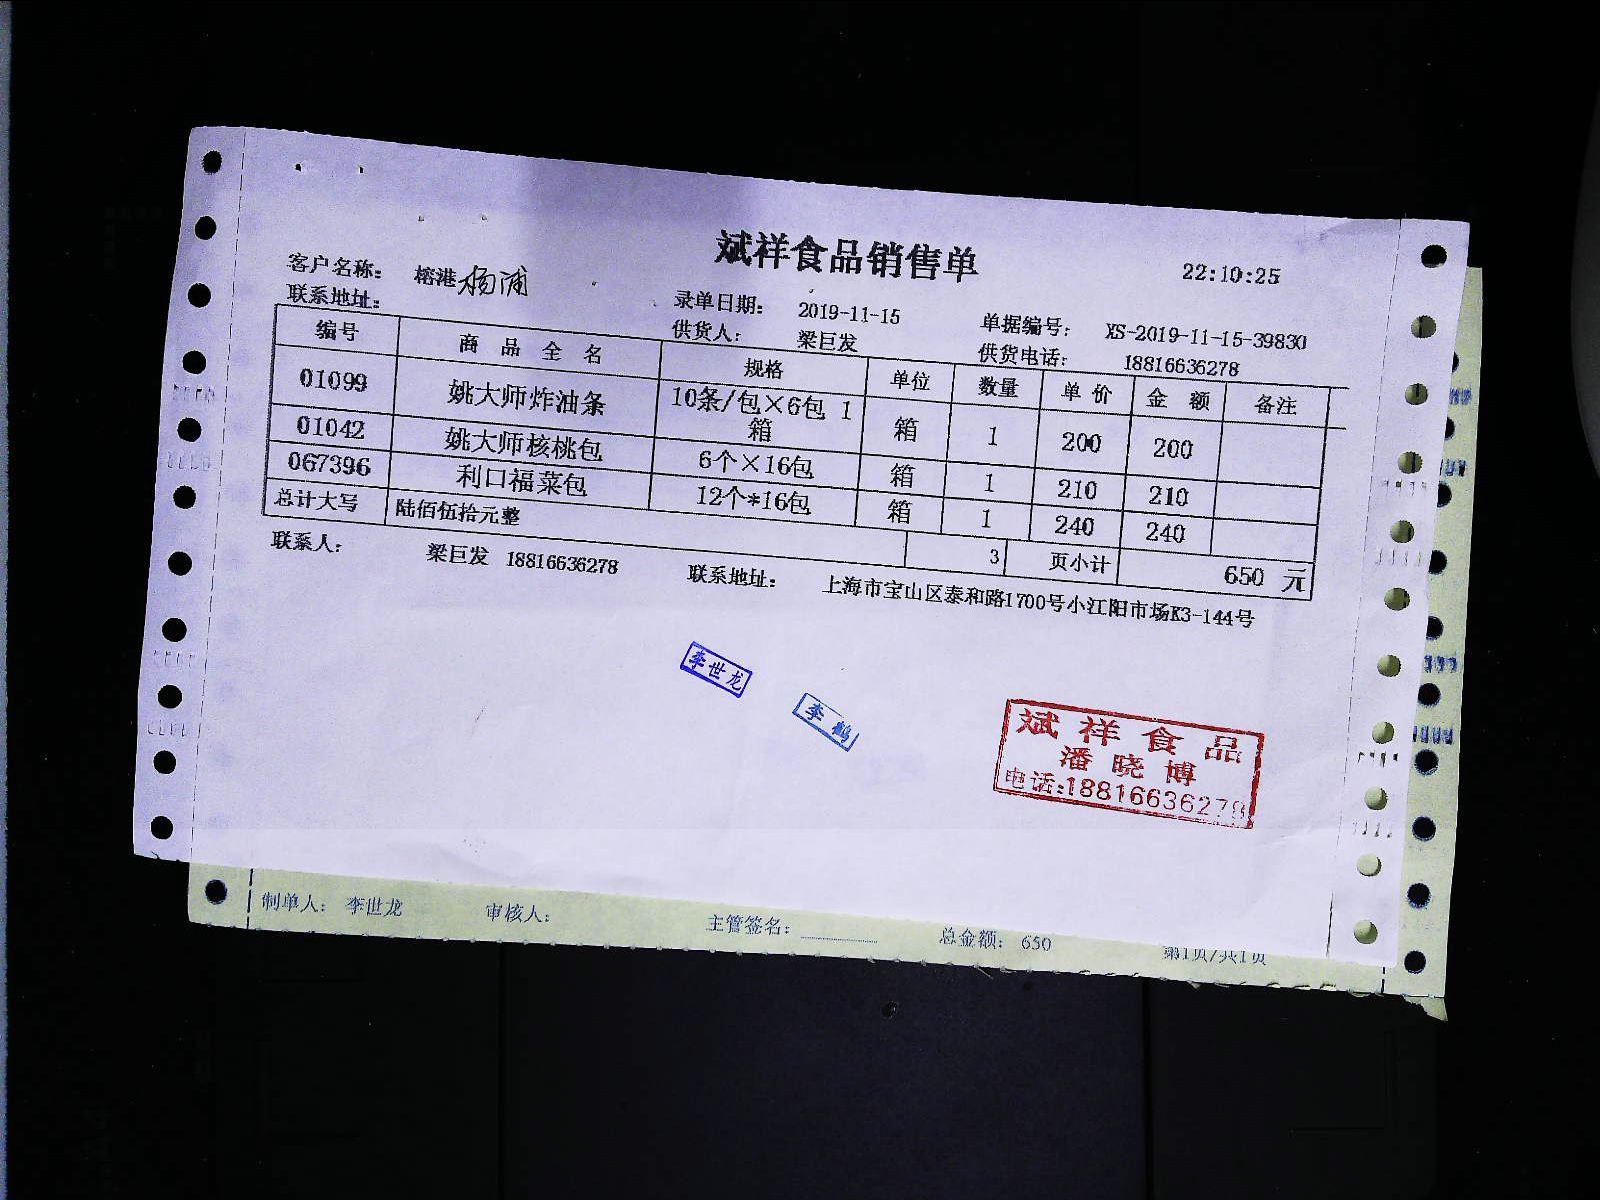 斌祥食品销售单
22:10:25
客户名称: 榕港杨浦
录单日期: 2019-11-15
单据编号: XS-2019-11-15-39830
联系地址:
供货人: 梁巨发
供货电话: 18816636278
编号 商品全名 规格 单位 数量 单价 金额 备注
01099 姚大师炸油条 10条/包×6包 1箱 箱 1 200 200
01042 姚大师核桃包 6个×16包 箱 1 210 210
067396 利口福菜包 12个*16包 箱 1 240 240
总计大写 陆佰伍拾元整 3 页小计 650 元
联系人: 梁巨发 18816636278 联系地址: 上海市宝山区泰和路1700号小江阳市场K3-144号
李世龙
李鹤
斌祥食品
潘晓博
电话:18816636278
制单人: 李世龙 审核人: 主管签名: 总金额: 650 第1页/共1页